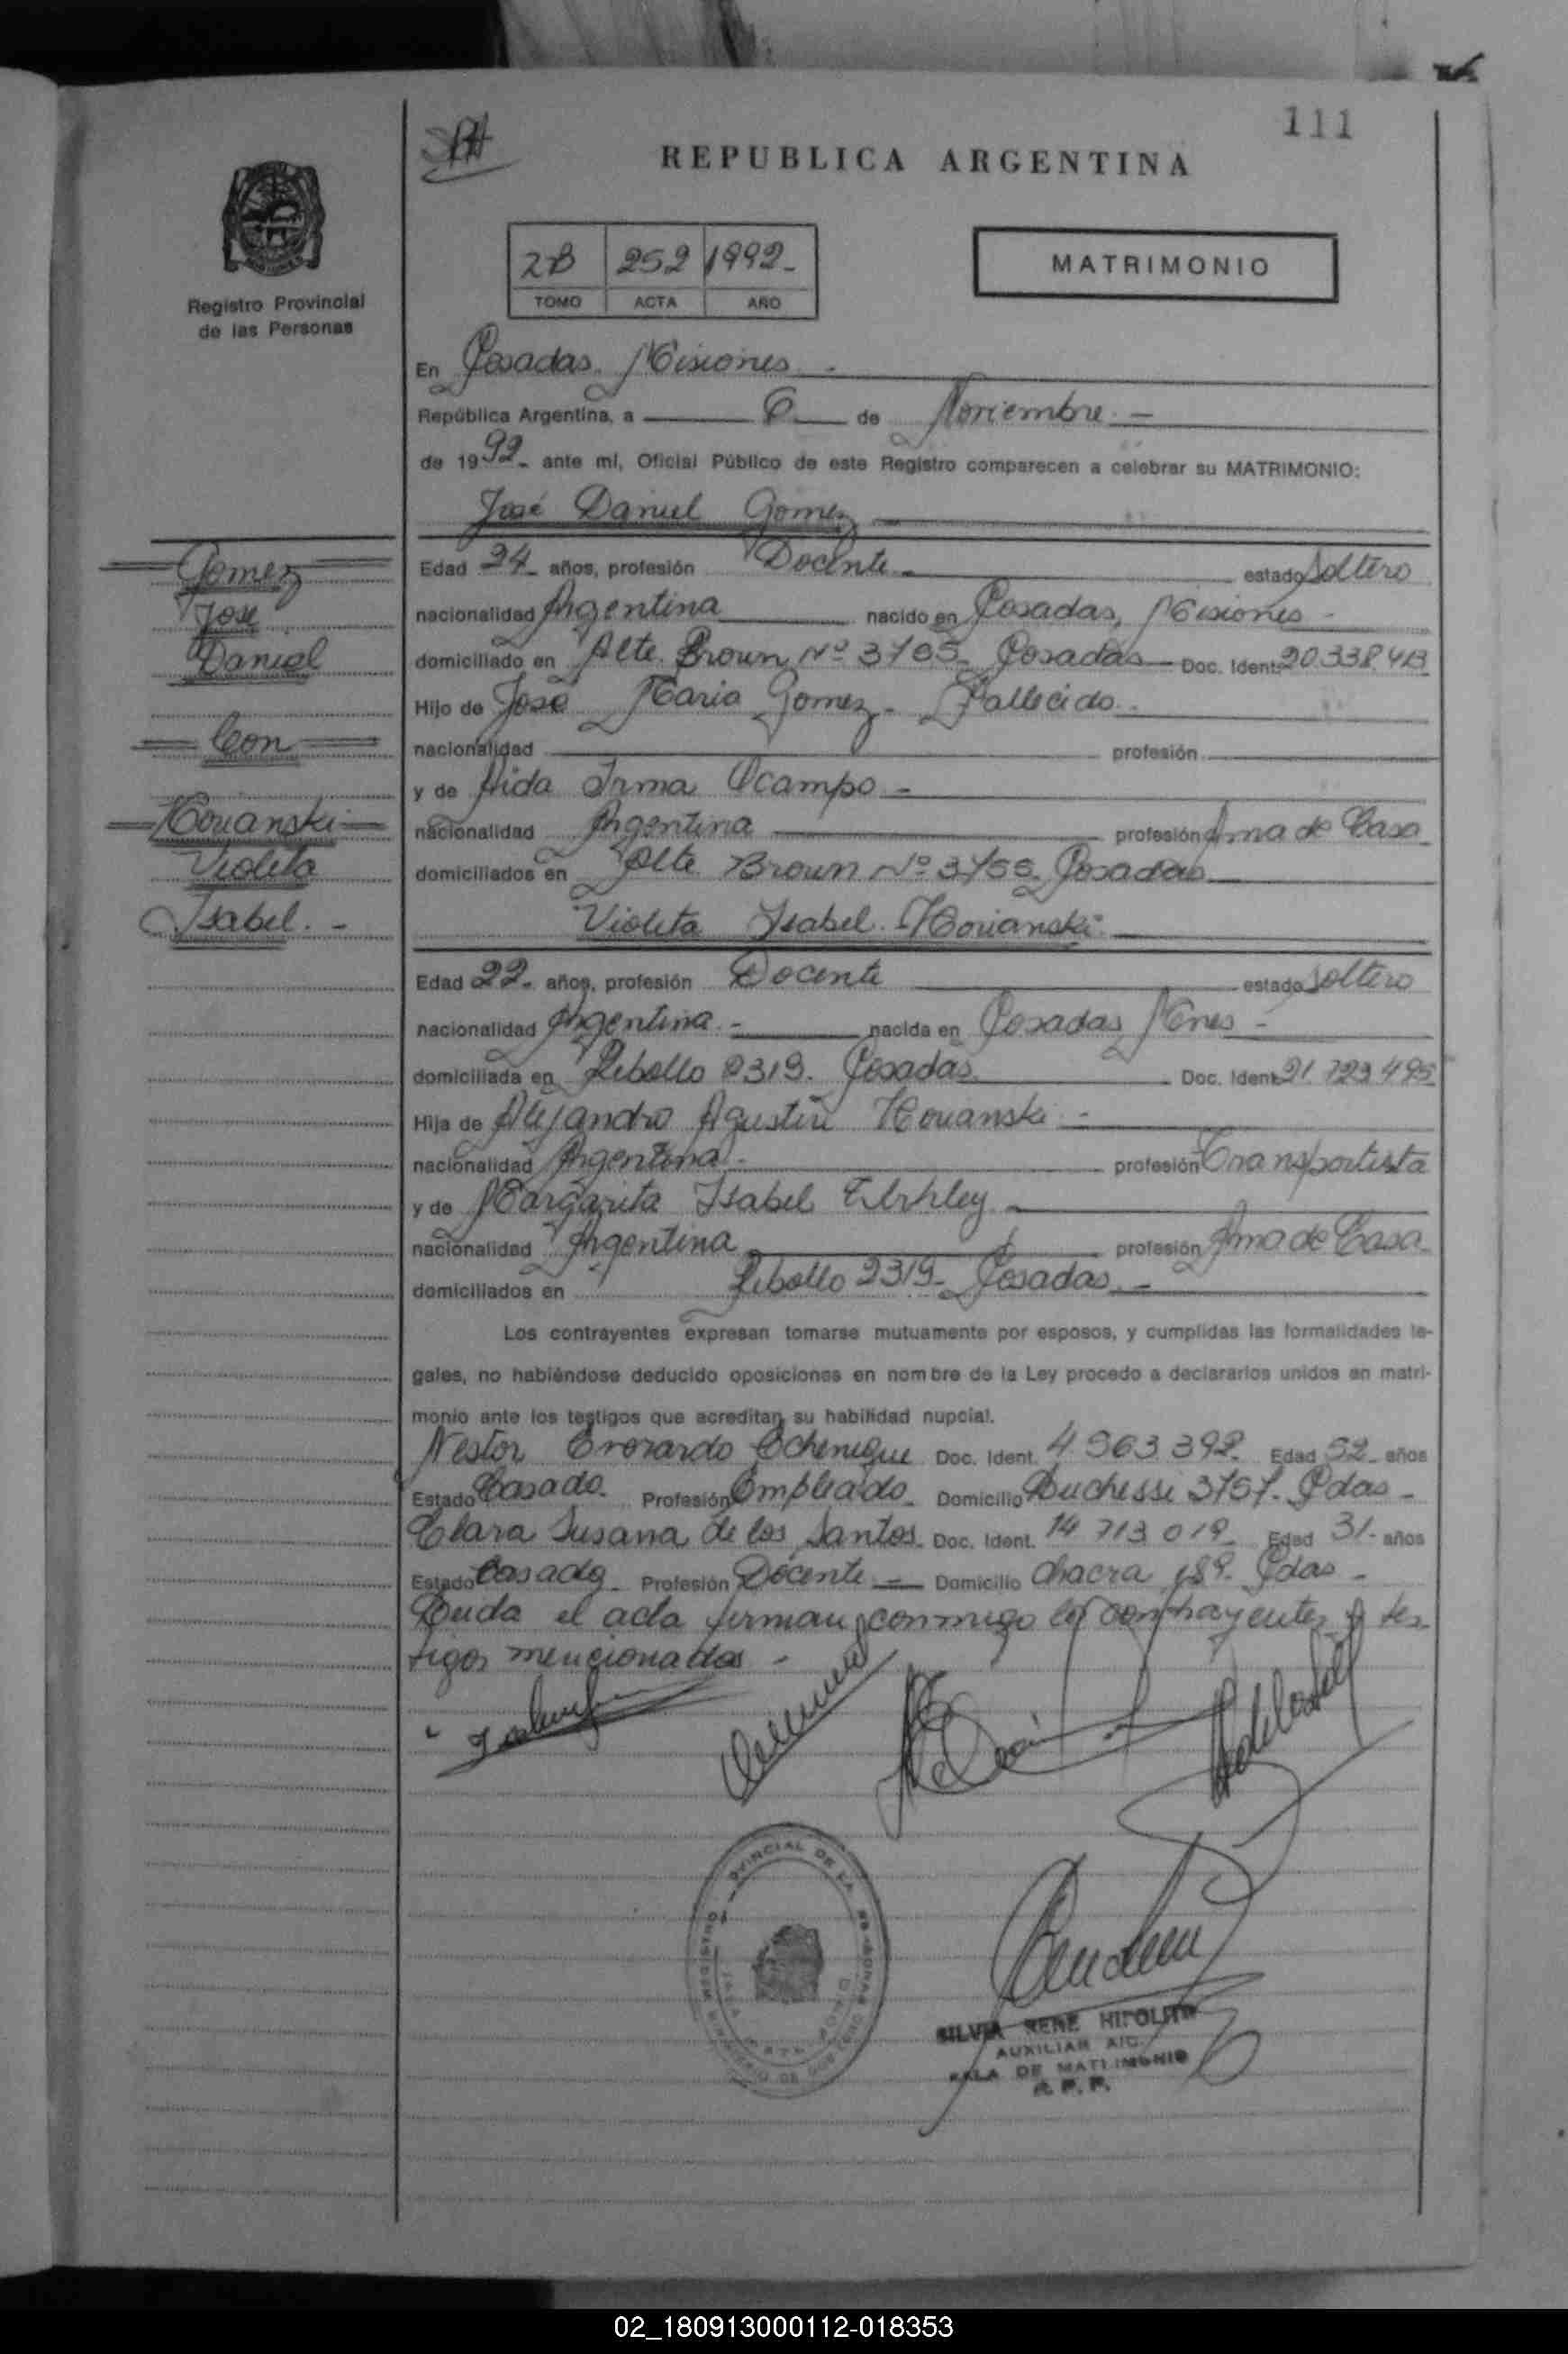 111
REPUBLICA ARGENTINA
2B 252 1992-
TOMO ACTA AÑO
MATRIMONIO
Registro Provincial
de las Personas
En Posadas. Misiones -
República Argentina, a 6 de Noviembre -
de 1992- ante mi, Oficial Público de este Registro comparecen a celebrar su MATRIMONIO:
José Daniel Gomez
Gomez
Jose
Daniel
Con
Violeta
Isabel. -
Edad 24- años, profesión Docente - estado Soltero
nacionalidad Argentina nacido en Posadas, Misiones -
domiciliado en Alte. Brown Nº Posadas Doc. Ident.
Hijo de José Maria Gomez - Fallecido.
nacionalidad profesión
y de Aida Irma Ocampo -
nacionalidad Argentina profesión Ama de Casa
domiciliados en Alte Brown Nº Posadas
Violeta Isabel
Edad 22- años, profesión Docente estado Soltero
nacionalidad Argentina - nacida en Posadas Mnes -
domiciliada en 2319. Posadas. Doc. Ident.
Hija de Alejandro Agustin
nacionalidad Argentina - profesión Transportista
y de Margarita Isabel
nacionalidad Argentina profesión Ama de Casa
domiciliados en 2319- Posadas -
Los contrayentes expresan tomarse mutuamente por esposos, y cumplidas las formalidades le-
gales, no habiéndose deducido oposiciones en nombre de la Ley procedo a declararlos unidos en matri-
monio ante los testigos que acreditan su habilidad nupcial.
Nestor Doc. Ident. 4.963.392- Edad 52- años
Estado Casado. Profesión Empleado- Domicilio Pdas -
Clara Susana de los Santos- Doc. Ident. 14 713 019- Edad 31- años
Estado Casada- Profesión Docente - Domicilio Chacra 189. Pdas -
el acta firman conmigo los contrayentes y tes-
tigos mencionados -
SILVIA RENE HIPOLITO
AUXILIAR
SALA DE MATRIMONIO
R. P. P.
02_180913000112-018353